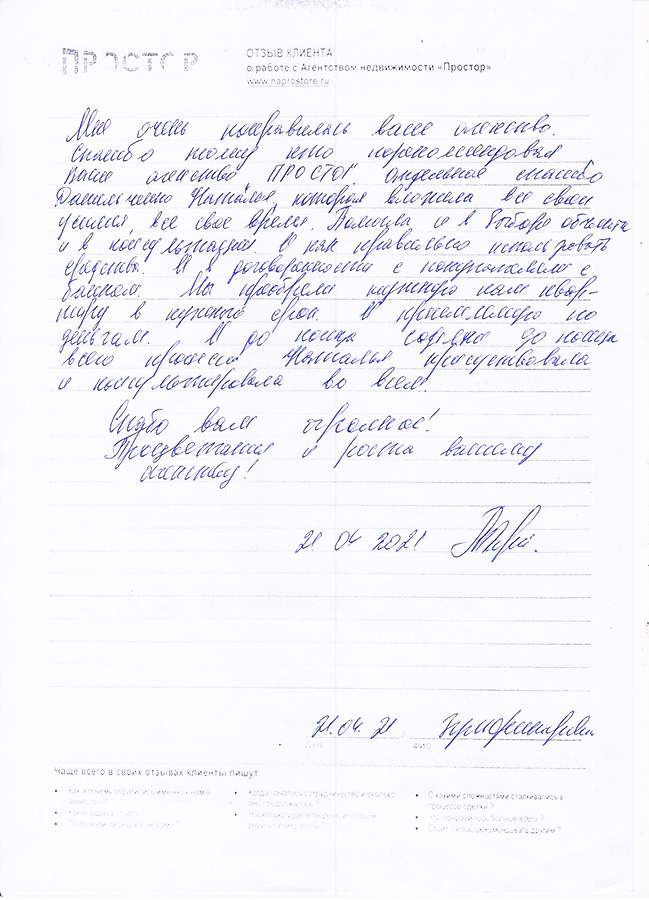 ПРОСТОР
ОТЗЫВ КЛИЕНТА
о работе с Агентством недвижимости «Простор»
www.naprostore.ru
Мне очень понравилось ваше агенство.
Спасибо тому кто порекомендовал
Ваше агенство "ПРОСТОР". Отдельное спасибо
Данильченко Наталья, которая вложила все свои
усилия, все свое время. Помогла и в выборе объекта
и в консультации. И как правильно использовать
средства. И в договоренности с покупателями с
банком. Мы приобрели нужную нам квар-
тиру в нужный срок. И приемлемую по
деньгам. И до конца сделки до конца
всего процесса Наталья присутствовала
и консультировала во всем.
Спасибо вам огромное!
Процветания и роста вашему
агенству!
21 04 2021
21.04.21
ДАТА ФИО
Чаще всего в своих отзывах клиенты пишут:
• Как и почему обратились именно к нам в агентство?
• Когда началось сотрудничество и сколько оно продолжалось?
• С какими сложностями сталкивались в процессе сделки?
• Что понравилось больше всего?
• Стоит ли нас рекомендовать другим?